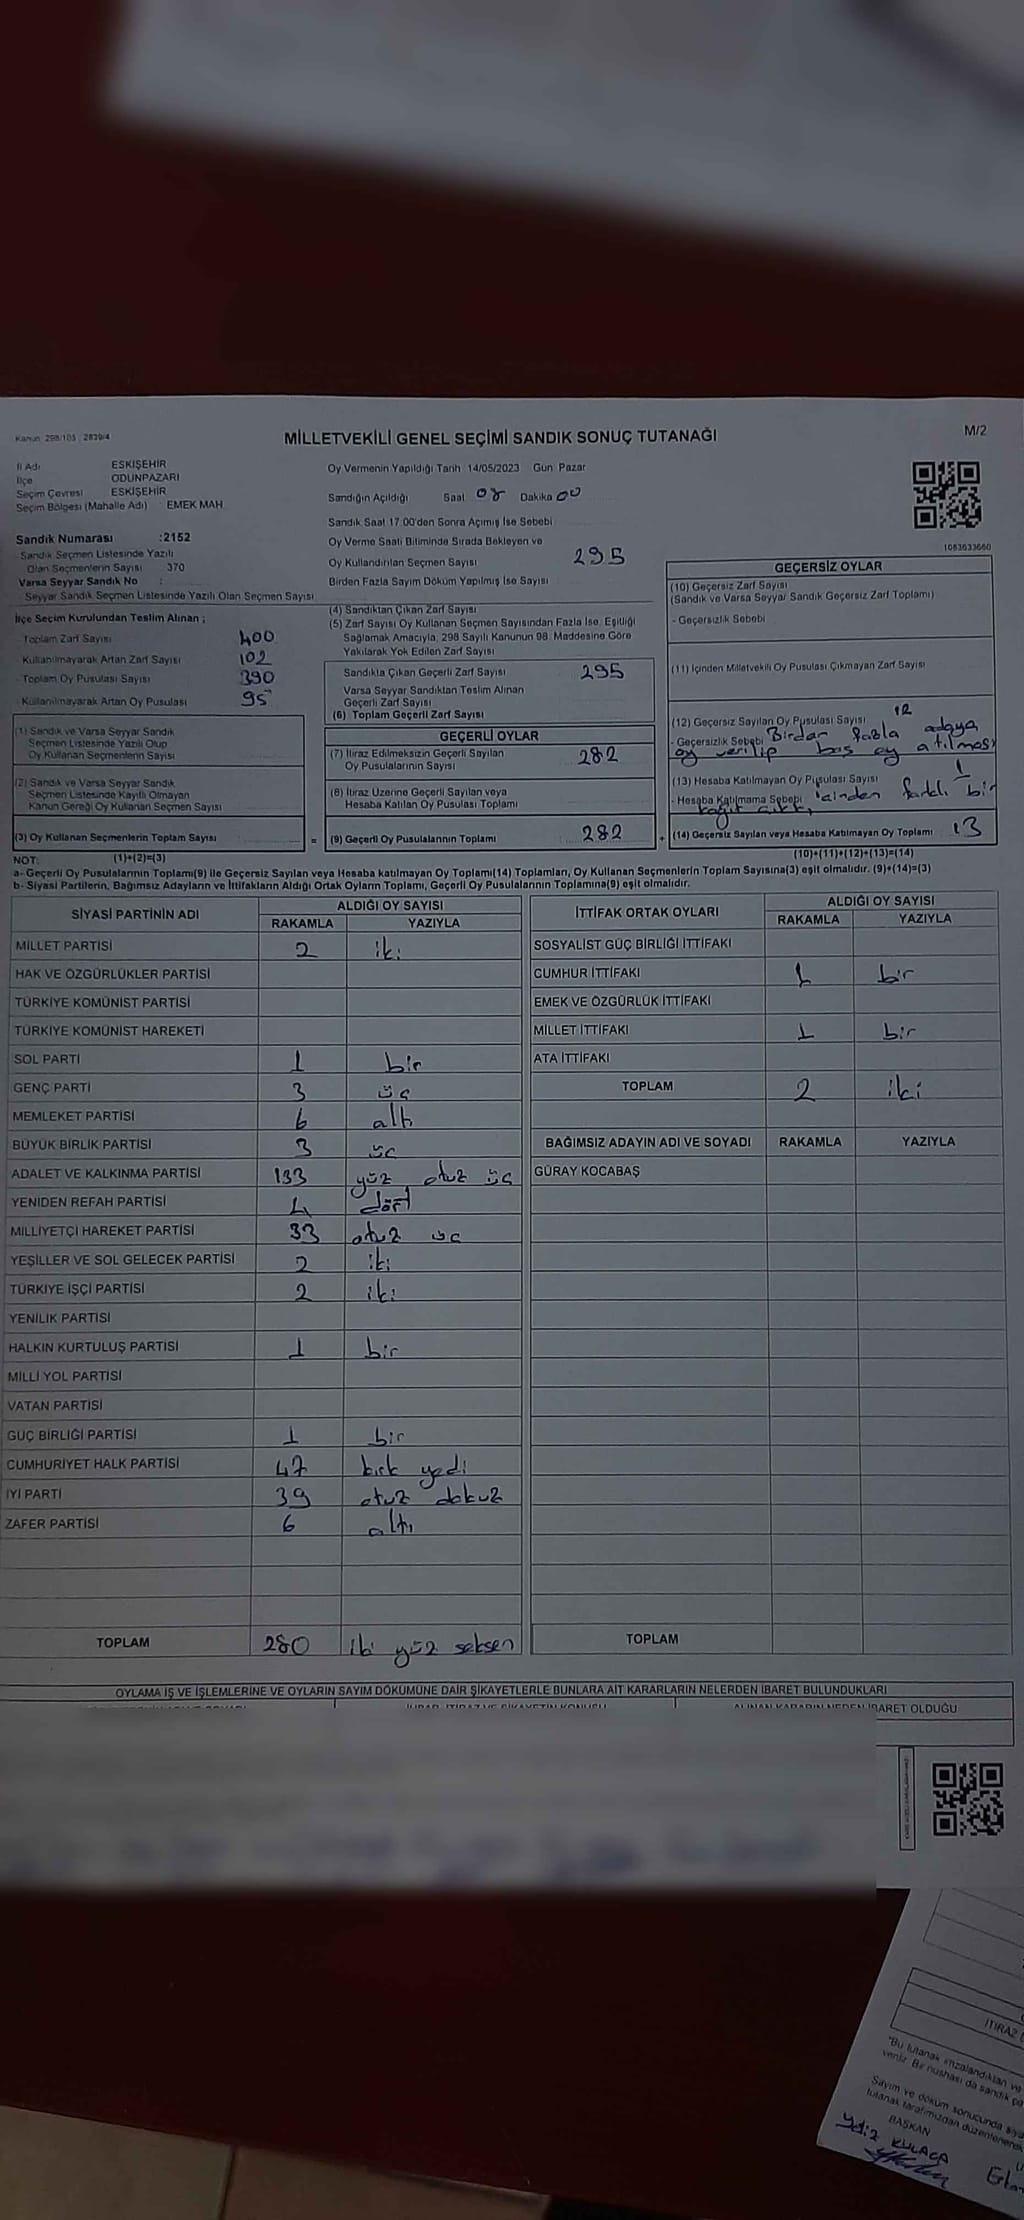 Kanun 298/105 ; 2839/4
MİLLETVEKİLİ GENEL SEÇİMİ SANDIK SONUÇ TUTANAĞI
M/2
İl Adı ESKİŞEHİR
İlçe ODUNPAZARI
Seçim Çevresi ESKİŞEHİR
Seçim Bölgesi (Mahalle Adı) EMEK MAH
Sandık Numarası :2152
Sandık Seçmen Listesinde Yazılı
Olan Seçmenlerin Sayısı 370
Varsa Seyyar Sandık No :
Seyyar Sandık Seçmen Listesinde Yazılı Olan Seçmen Sayısı
Oy Vermenin Yapıldığı Tarih 14/05/2023 Gün Pazar
Sandığın Açıldığı Saat 08 Dakika 00
Sandık Saat 17.00'den Sonra Açımış İse Sebebi
Oy Verme Saati Bitiminde Sırada Bekleyen ve
Oy Kullandırılan Seçmen Sayısı 295
Birden Fazla Sayım Döküm Yapılmış İse Sayısı
1083633660
İlçe Seçim Kurulundan Teslim Alınan ;
- Toplam Zarf Sayısı 400
- Kullanılmayarak Artan Zarf Sayısı 102
- Toplam Oy Pusulası Sayısı 390
- Kullanılmayarak Artan Oy Pusulası 95
(1) Sandık ve Varsa Seyyar Sandık
Seçmen Listesinde Yazılı Olup
Oy Kullanan Seçmenlerin Sayısı
(2) Sandık ve Varsa Seyyar Sandık
Seçmen Listesinde Kayıtlı Olmayan
Kanun Gereği Oy Kullanan Seçmen Sayısı
(3) Oy Kullanan Seçmenlerin Toplam Sayısı =
(4) Sandıktan Çıkan Zarf Sayısı
(5) Zarf Sayısı Oy Kullanan Seçmen Sayısından Fazla İse, Eşitliği
Sağlamak Amacıyla, 298 Sayılı Kanunun 98. Maddesine Göre
Yakılarak Yok Edilen Zarf Sayısı
Sandıkta Çıkan Geçerli Zarf Sayısı 295
Varsa Seyyar Sandıktan Teslim Alınan
Geçerli Zarf Sayısı
(6) Toplam Geçerli Zarf Sayısı
GEÇERLİ OYLAR
(7) İtiraz Edilmeksizin Geçerli Sayılan
Oy Pusulalarının Sayısı 282
(8) İtiraz Üzerine Geçerli Sayılan veya
Hesaba Katılan Oy Pusulası Toplamı
(9) Geçerli Oy Pusulalarının Toplamı 282 +
GEÇERSİZ OYLAR
(10) Geçersiz Zarf Sayısı
(Sandık ve Varsa Seyyar Sandık Geçersiz Zarf Toplamı)
- Geçersizlik Sebebi
(11) İçinden Milletvekili Oy Pusulası Çıkmayan Zarf Sayısı
(12) Geçersiz Sayılan Oy Pusulası Sayısı 12
- Geçersizlik Sebebi Birdan fazla adaya
oy verilip boş oy atılması
(13) Hesaba Katılmayan Oy Pusulası Sayısı 1
- Hesaba Katılmama Sebebi içinden farklı bir
kağıt çıktı
(14) Geçersiz Sayılan veya Hesaba Katılmayan Oy Toplamı 13
NOT: (1)+(2)=(3)
(10)+(11)+(12)+(13)=(14)
a- Geçerli Oy Pusulalarının Toplamı(9) ile Geçersiz Sayılan veya Hesaba katılmayan Oy Toplamı(14) Toplamları, Oy Kullanan Seçmenlerin Toplam Sayısına(3) eşit olmalıdır. (9)+(14)=(3)
b- Siyasi Partilerin, Bağımsız Adayların ve İttifakların Aldığı Ortak Oyların Toplamı, Geçerli Oy Pusulalarının Toplamına(9) eşit olmalıdır.
SİYASİ PARTİNİN ADI ALDIĞI OY SAYISI
RAKAMLA YAZIYLA
MİLLET PARTİSİ 2 iki
HAK VE ÖZGÜRLÜKLER PARTİSİ
TÜRKİYE KOMÜNİST PARTİSİ
TÜRKİYE KOMÜNİST HAREKETİ
SOL PARTİ 1 bir
GENÇ PARTİ 3 üç
MEMLEKET PARTİSİ 6 altı
BÜYÜK BİRLİK PARTİSİ 3 üç
ADALET VE KALKINMA PARTİSİ 133 yüz otuz üç
YENİDEN REFAH PARTİSİ 4 dört
MİLLİYETÇİ HAREKET PARTİSİ 33 otuz üç
YEŞİLLER VE SOL GELECEK PARTİSİ 2 iki
TÜRKİYE İŞÇİ PARTİSİ 2 iki
YENİLİK PARTİSİ
HALKIN KURTULUŞ PARTİSİ 1 bir
MİLLİ YOL PARTİSİ
VATAN PARTİSİ
GÜÇ BİRLİĞİ PARTİSİ 1 bir
CUMHURİYET HALK PARTİSİ 47 kırk yedi
İYİ PARTİ 39 otuz dokuz
ZAFER PARTİSİ 6 altı
TOPLAM 280 iki yüz seksen
İTTİFAK ORTAK OYLARI ALDIĞI OY SAYISI
RAKAMLA YAZIYLA
SOSYALİST GÜÇ BİRLİĞİ İTTİFAKI
CUMHUR İTTİFAKI 1 bir
EMEK VE ÖZGÜRLÜK İTTİFAKI
MİLLET İTTİFAKI 1 bir
ATA İTTİFAKI
TOPLAM 2 iki
BAĞIMSIZ ADAYIN ADI VE SOYADI RAKAMLA YAZIYLA
GÜRAY KOCABAŞ
TOPLAM
OYLAMA İŞ VE İŞLEMLERİNE VE OYLARIN SAYIM DÖKÜMÜNE DAİR ŞİKAYETLERLE BUNLARA AİT KARARLARIN NELERDEN İBARET BULUNDUKLARI
İHBAR, İTİRAZ VE ŞİKAYETİN KONUSU
ALINAN KARARIN NEDEN İBARET OLDUĞU
İTİRAZ
"Bu tutanak imzalandıktan ve
verilir. Bir nüshası da sandık
Sayım ve döküm sonucunda
tutanak tarafımızdan düzenlenerek
BAŞKAN